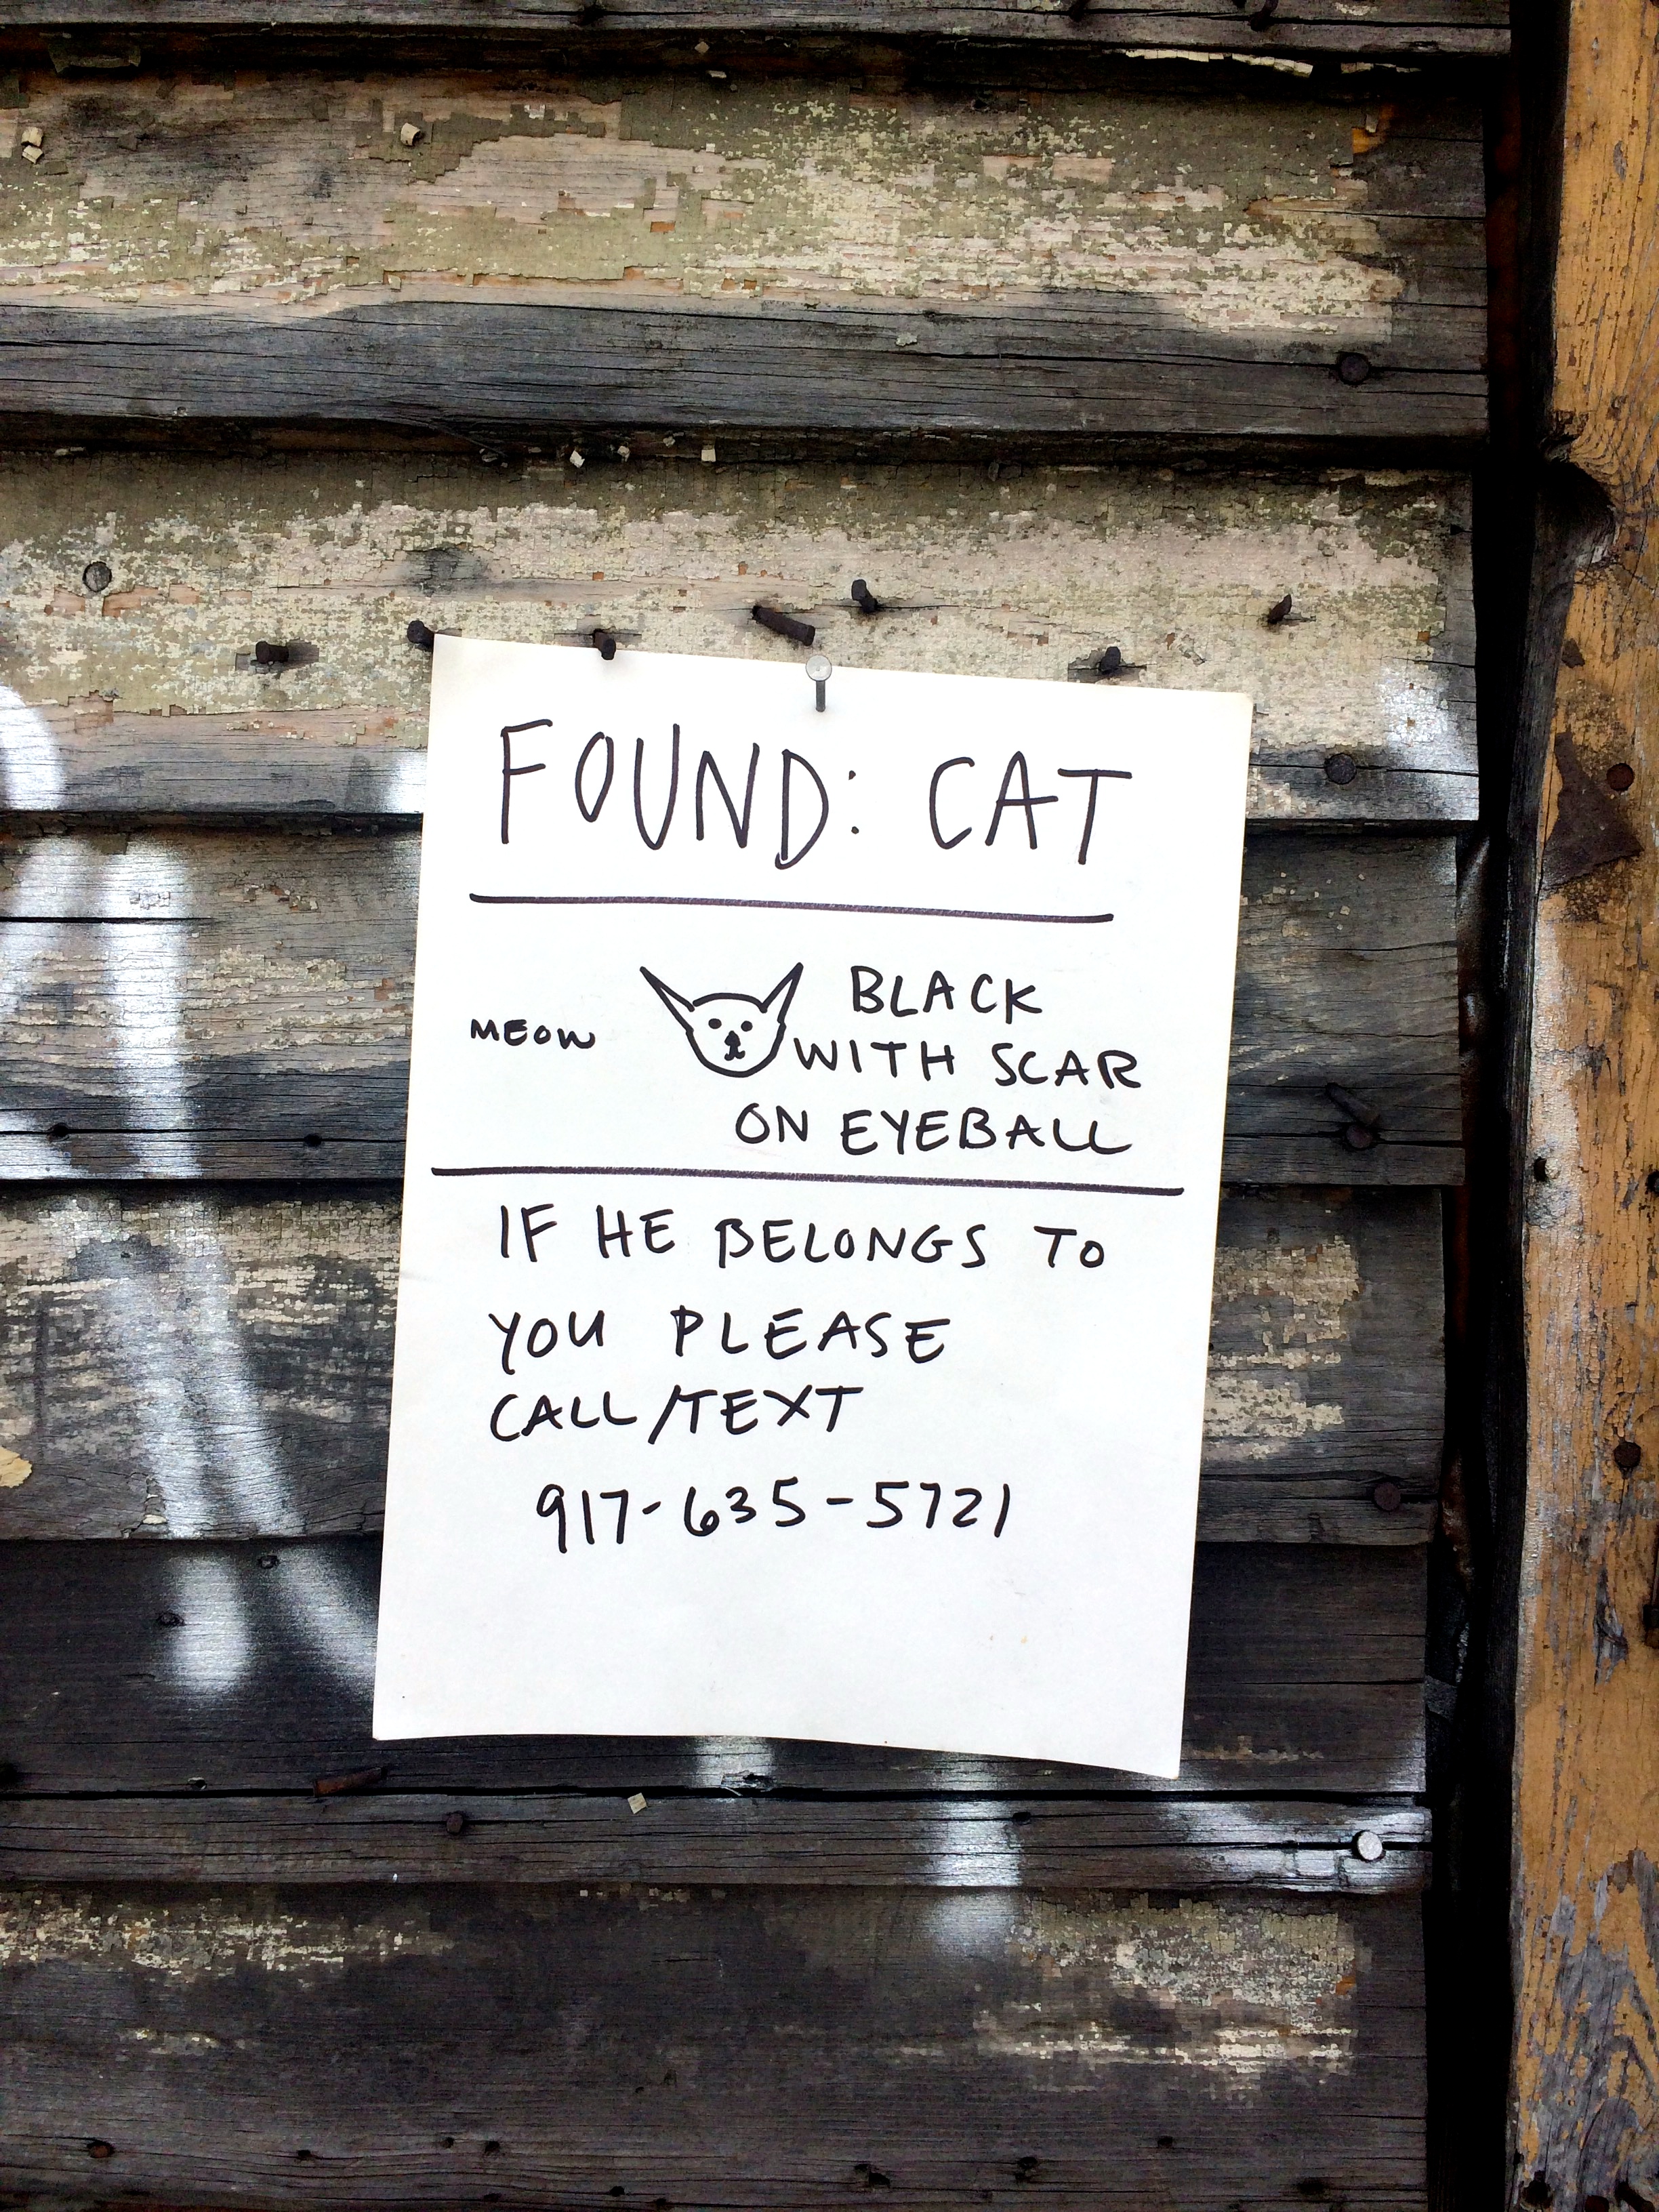 FOUND: CAT
MEOW
BLACK
WITH SCAR
ON EYEBALL
IF HE BELONGS TO
YOU PLEASE
CALL/TEXT
917-635-5721